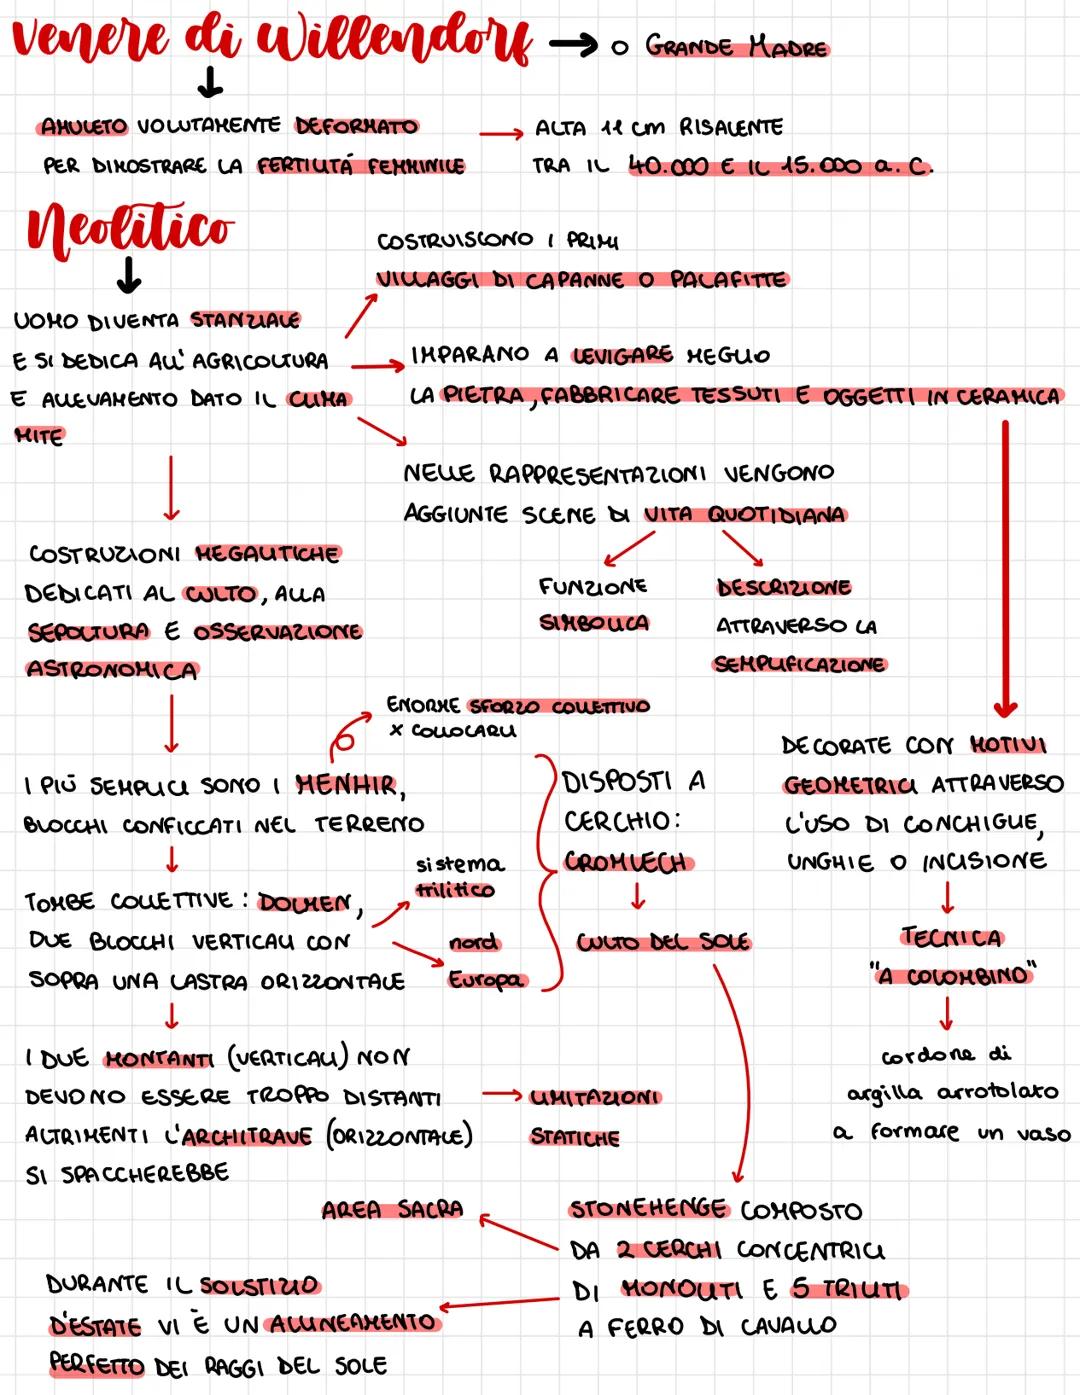 Venere di Willendorf → o GRANDE MADRE
AMULETO VOLUTAMENTE DEFORMATO
PER DIMOSTRARE LA FERTILITÁ FEMMINILE
→ ALTA 11 cm RISALENTE
TRA IL 40.000 E IL 15.000 a.C.
Neolitico
UOMO DIVENTA STANZIALE
E SI DEDICA ALL'AGRICOLTURA
E ALLEVAMENTO DATO IL CLIMA
MITE
COSTRUISCONO I PRIMI
VILLAGGI DI CAPANNE O PALAFITTE
IMPARANO A LEVIGARE MEGLIO
LA PIETRA, FABBRICARE TESSUTI E OGGETTI IN CERAMICA
NELLE RAPPRESENTAZIONI VENGONO
AGGIUNTE SCENE DI VITA QUOTIDIANA
FUNZIONE
SIMBOLICA
DESCRIZIONE
ATTRAVERSO LA
SEMPLIFICAZIONE
COSTRUZIONI MEGALITICHE
DEDICATI AL CULTO, ALLA
SEPOLTURA E OSSERVAZIONE
ASTRONOMICA
ENORME SFORZO COLLETTIVO
X COLLOCARLI
I PIÙ SEMPLICI SONO I MENHIR,
BLOCCHI CONFICCATI NEL TERRENO
TOMBE COLLETTIVE: DOLMEN,
DUE BLOCCHI VERTICALI CON
SOPRA UNA LASTRA ORIZZONTALE
sistema
trilitico
nord
Europa
DISPOSTI A
CERCHIO:
CROMLECH
CULTO DEL SOLE
DECORATE CON MOTIVI
GEOMETRICI ATTRAVERSO
L'USO DI CONCHIGLIE,
UNGHIE O INCISIONE
TECNICA
"A COLOMBINO"
cordone di
argilla arrotolato
a formare un vaso
I DUE MONTANTI (VERTICALI) NON
DEVONO ESSERE TROPPO DISTANTI
ALTRIMENTI L'ARCHITRAVE (ORIZZONTALE)
SI SPACCHEREBBE
LIMITAZIONI
STATICHE
STONEHENGE COMPOSTO
DA 2 CERCHI CONCENTRICI
DI MONOLITI E 5 TRILITI
A FERRO DI CAVALLO
AREA SACRA
DURANTE IL SOLSTIZIO
D'ESTATE VI È UN ALLINEAMENTO
PERFETTO DEI RAGGI DEL SOLE